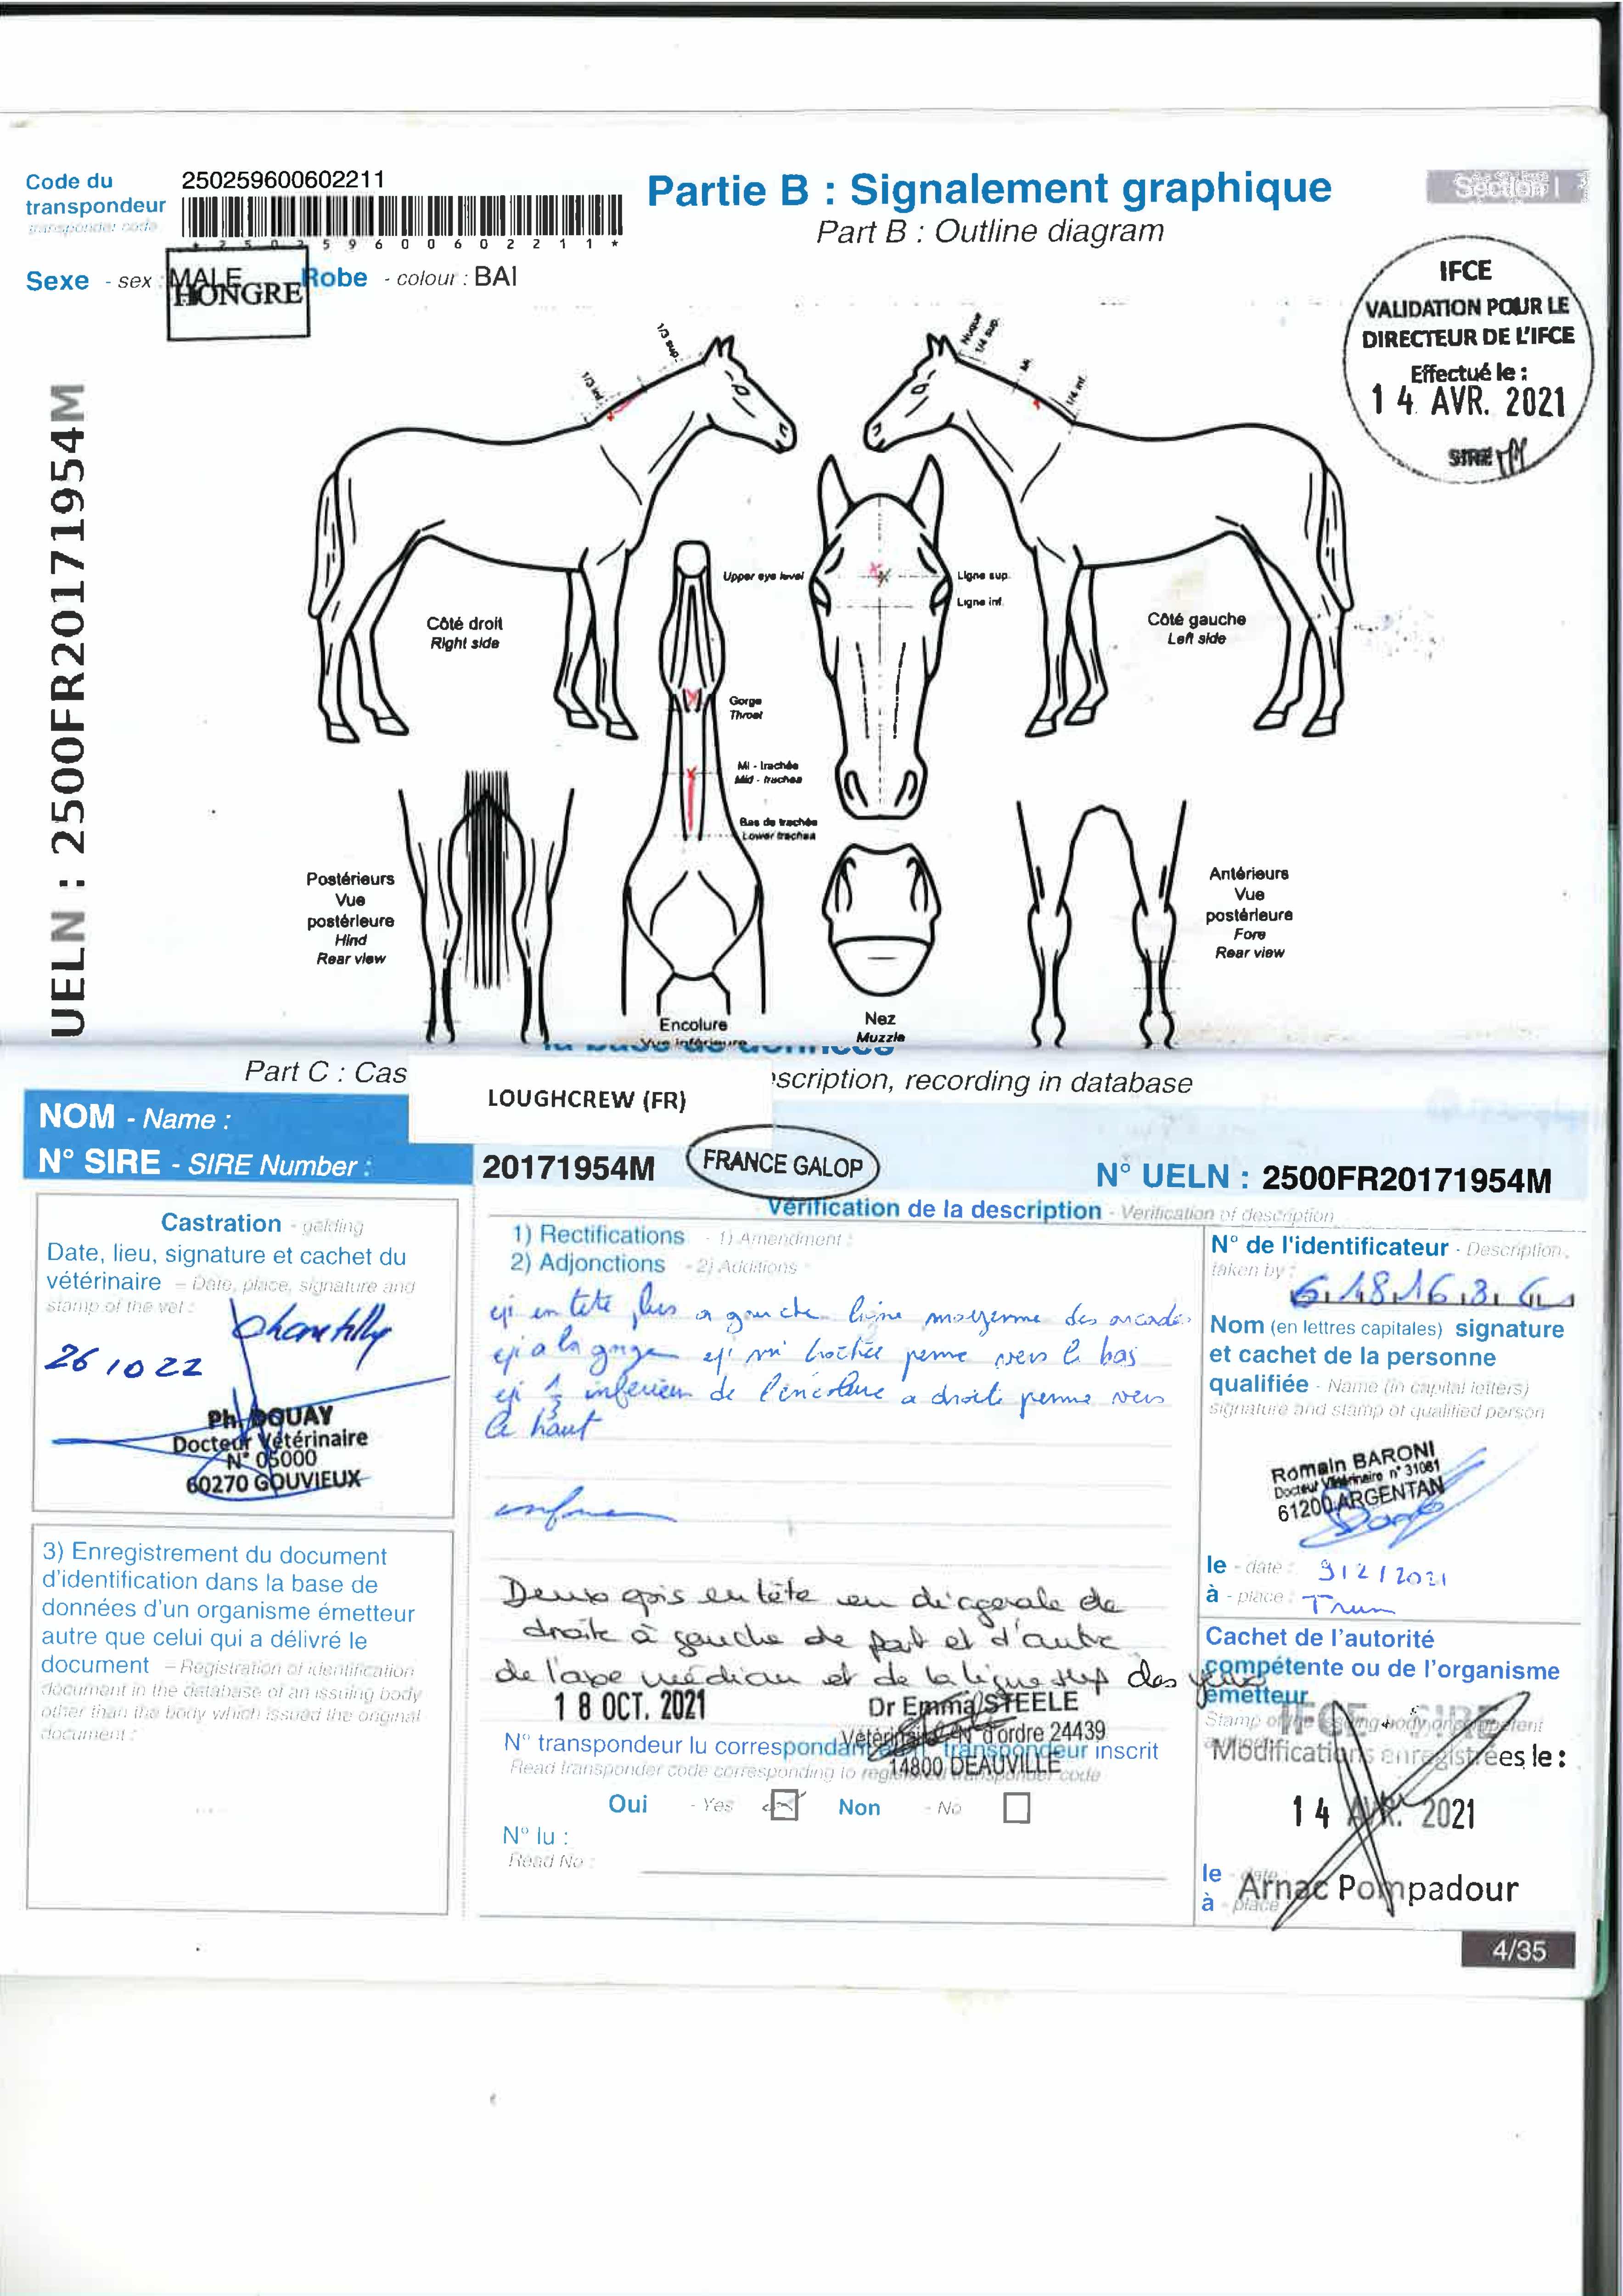 Code du
transpondeur
transponder code
250259600602211
*250259600602211*
Partie B : Signalement graphique
Part B : Outline diagram
Section I
Sexe - sex :
MALE
HONGRE
Robe - colour : BAI
IFCE
VALIDATION POUR LE
DIRECTEUR DE L'IFCE
Effectué le :
14 AVR. 2021
SIRE
UELN : 2500FR20171954M
1/3 sup.
1/3 inf.
Nuque
1/4 sup.
Mi.
1/4 inf.
Côté droit
Right side
Upper eye level
Ligne sup.
Ligne inf.
Côté gauche
Left side
Gorge
Throat
Mi - trachée
Mid - trachea
Bas de trachée
Lower trachea
Postérieurs
Vue
postérieure
Hind
Rear view
Antérieurs
Vue
postérieure
Fore
Rear view
Encolure
Vue inférieure
Nez
Muzzle
la base de données
Part C : Cas
scription, recording in database
LOUGHCREW (FR)
NOM - Name :
N° SIRE - SIRE Number :
20171954M
FRANCE GALOP
N° UELN : 2500FR20171954M
Castration - gelding
Date, lieu, signature et cachet du
vétérinaire - Date, place, signature and
stamp of the vet :
Chantilly
26 10 22
Ph. DOUAY
Docteur Vétérinaire
N° 05000
60270 GOUVIEUX
3) Enregistrement du document
d'identification dans la base de
données d'un organisme émetteur
autre que celui qui a délivré le
document - Registration of identification
document in the database of an issuing body
other than the body which issued the original
document :
Vérification de la description - Verification of description
1) Rectifications - 1) Amendment :
2) Adjonctions - 2) Additions
epi en tete plus a gauche ligne moyenne des arcades
epi a la gorge epi mi trachée penne vers le bas
epi 1/3 inferieur de l'encolure a droite penne vers
le haut
Deux epis en tête en diagonale de
droite à gauche de part et d'autre
de l'axe médian et de la ligne sup des yeux
18 OCT. 2021
Dr Emma STEELE
Vétérinaire N° d'ordre 24439
14800 DEAUVILLE
N° transpondeur lu correspondant au transpondeur inscrit
Read transponder code corresponding to registered transponder code
Oui - Yes
Non - No
N° lu :
Read No :
N° de l'identificateur - Description
taken by :
6 18 16 3 6
Nom (en lettres capitales) signature
et cachet de la personne
qualifiée - Name (in capital letters)
signature and stamp of qualified person
Romain BARONI
Docteur Vétérinaire n° 31081
61200 ARGENTAN
le - date : 9/2/2021
à - place : Trun
Cachet de l'autorité
compétente ou de l'organisme
émetteur
IFCE - SIRE
Stamp of the issuing body or competent
Modifications enregistrées le :
14 AVR. 2021
le - date
à - place
Arnac Pompadour
4/35